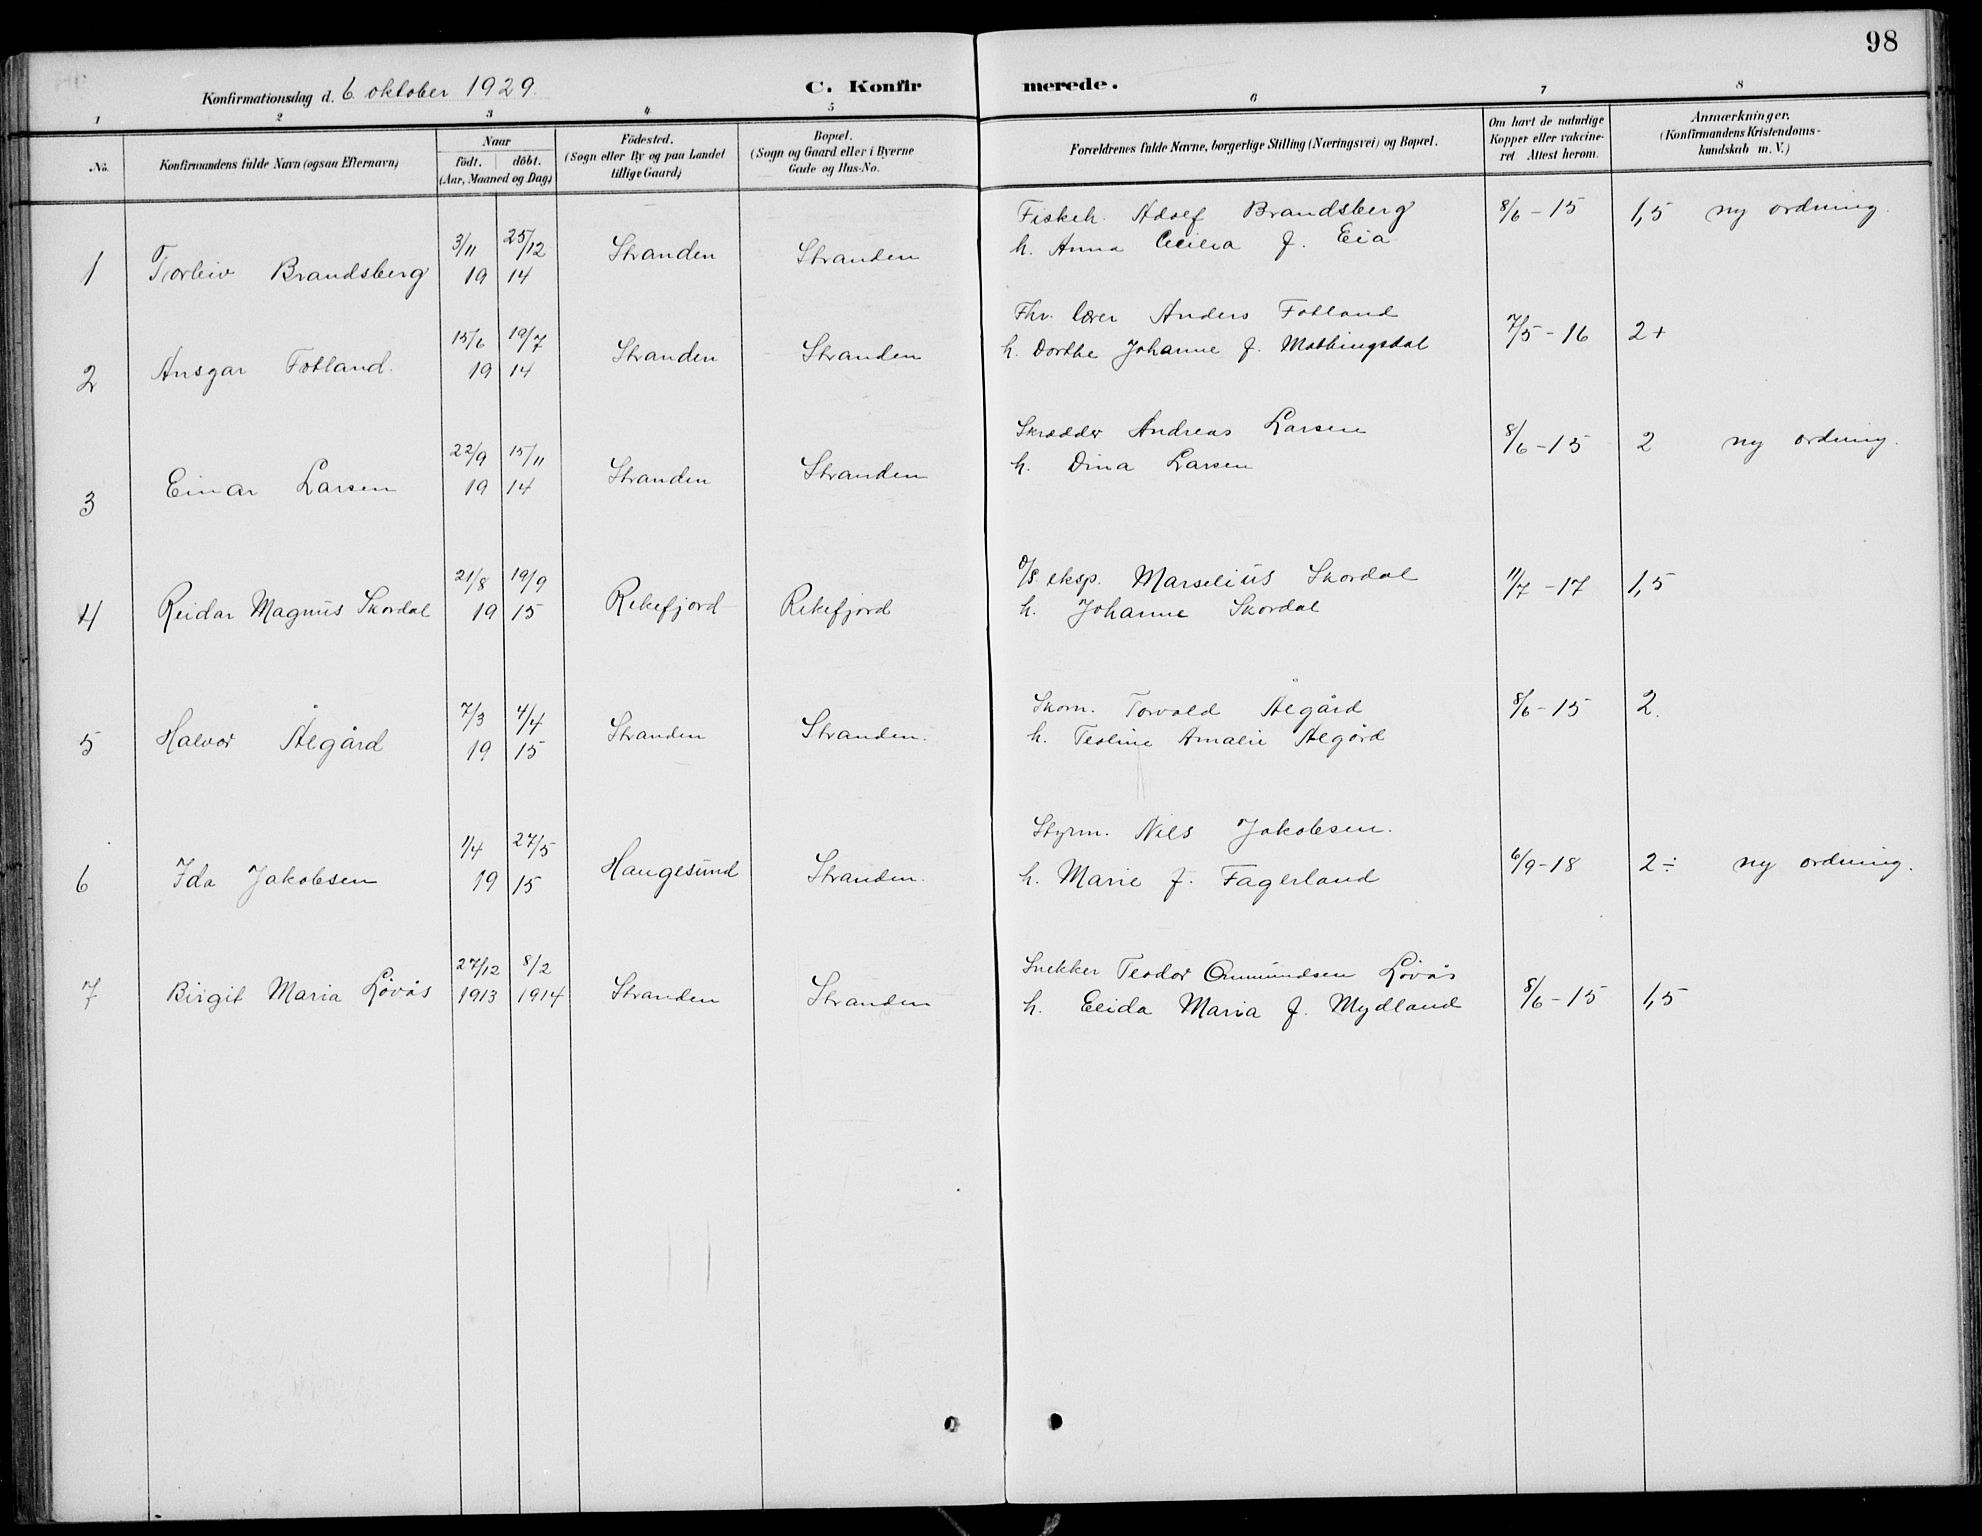 98
Konfirmationsdag d. 6 oktober 1929.
C. Konfirmerede.
1 2 3 4 5 6 7 8
No.
Konfirmandens fulde Navn (ogsaa Efternavn)
Naar
födt. döbt.
(Aar, Maaned og Dag)
Födested.
(Sogn eller By og paa Landet
tillige Gaard)
Bopæl.
(Sogn og Gaard eller i Byerne
Gade og Hus-No.
Forældrenes fulde Navne, borgerlige Stilling (Næringsvei) og Bopæl.
Om havt de naturlige
Kopper eller vakcine-
ret Attest herom.
Anmærkninger.
(Konfirmandens Kristendoms-
kundskab m. V.)
Fiskeh. Adolf Brandsberg 8/6 - 15 1,5 ny ordning.
3/11 25/12 Stranden Stranden h. Anna Cecilia f. Eia
1 Torleiv Brandsberg 19 14
Fhv. lærer Anders Fotland
15/6 19/7 Stranden Stranden h. Dorthe Johanne f. Mathingsdal 7/5 - 16 2+
2 Ansgar Fotland. 19 14
Skrædder Andreas Larsen 8/6 - 15 2 ny ordning.
22/9 15/11 Stranden Stranden h. Dina Larsen
3 Einar Larsen 19 14
D/S. eksp. Marselius Skordal 11/7 - 17 1,5
21/8 19/9 Rekefjord Rekefjord h. Johanne Skordal
4 Reidar Magnus Skordal 19 15
Skom. Torvald Ålgård 8/6 - 15 2.
7/3 4/4 Stranden Stranden. h. Teoline Amalie Ålgård
5 Halvor Ålgård 19 15
Styrm. Nils Jakobsen.
1/4 27/5 Haugesund Stranden. h. Marie f. Fagerland 6/9 - 18 2÷ ny ordning.
6 Ida Jakobsen 19 15
Snekker Teodor Ommundsen Lövås
27/12 8/2 Stranden Stranden h. Elida Maria f. Mydland 8/6 - 15 1,5
7 Birgit Maria Lövås 1913 1914